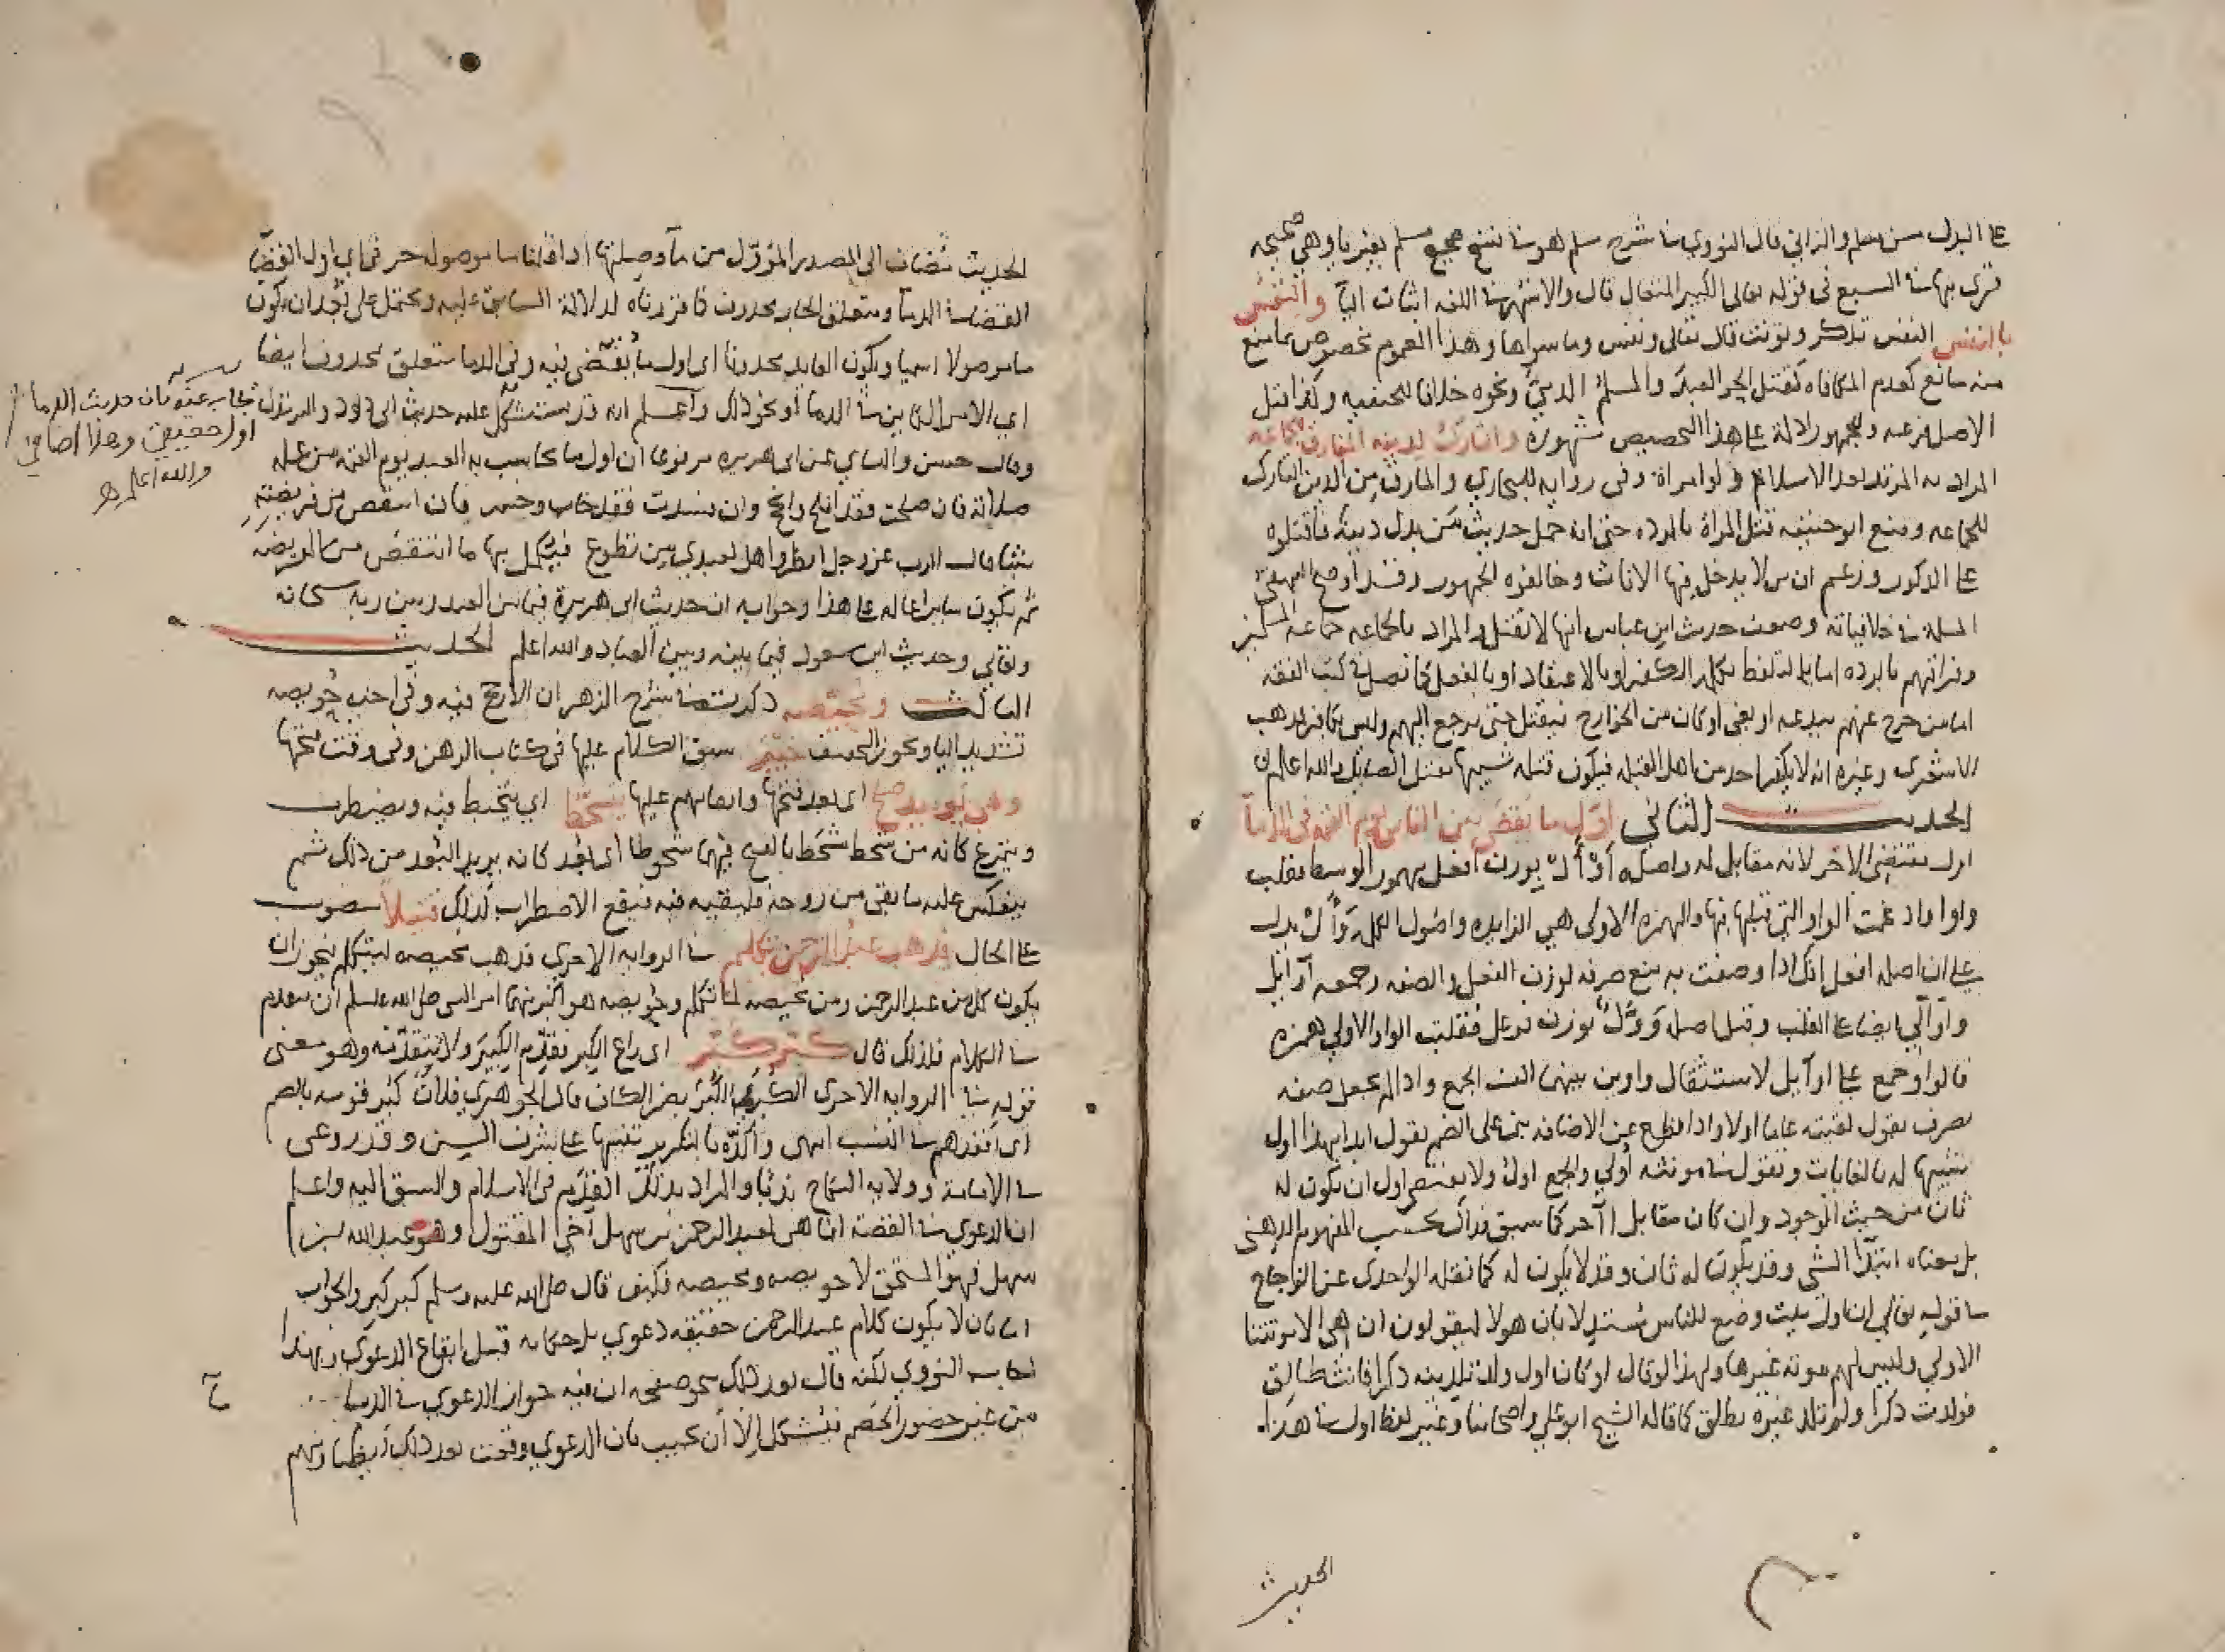 على البدل من مسلم والزاني قال النووي في شرح مسلم هو في نسخ صحيح مسلم بغير يا وهي صحيحه
قرى بها في السبع في قوله تعالى الكبير المتعال قال والاشهر في اللغه اثبات اليا والنفس
بالنفس النفس تذكر وتونث قال تعالى ونفس وما سواها وهذا العموم مخصوص بما منع
منه مانع كعدم المكافاه كقتل الحر العبد والمسلم الذمي ونحوه خلافا للحنفيه وكذا قتل
الاصل فرعه وللجمهور ادلة على هذا التخصيص شهوره والتارك لدينه المفارق للجماعه
المراد به المرتد بعد الاسلام ولو امراة وفي روايه للبخاري والمارق من الدين التارك
للجماعه ومنع ابو حنيفه قتل المراة بالرده حتى انه حمل حديث من بدل دينه فاقتلوه
على الذكور وزعم ان من لا يدخل فيها الاناث وخالفوه الجمهور وقد اوضح البيهقي
المسله في خلافياته وضعف حديث ابن عباس انها لا تقتل والمراد بالجماعه جماعه المسلمين
وفراقهم بالرده اما بالتلفظ بكلمه الكفر او بالاعتقاد او بالفعل كما فصل في كتب الفقه
اما من خرج عنهم ببدعه او بغي او كان من الخوارج فيقتل حتى يرجع اليهم وليس بكافر مذهب
الاشعري وغيره انه لا يكفر احد من اهل القبله فيكون قتله شبيها بقتل الصايل والله اعلم
الحديث الثاني اول ما يقضى بين الناس يوم القيمه في الدما
اول يقتضي الاخر لانه مقابل له واصله أوْأَل بوزن افعل مهموز الوسط فقلب
واوا وادغمت الواو التي قبلها فيها والهمزة الاولى هي الزايده واصول الكلمه وَأَل بدل
على ان اصله افعل انك اذا وصفت به منع صرفه لوزن الفعل والصفه وجمعه اوايل
واوالي ايضا على القلب وقيل اصله وَوَّل بوزن فوعل فقلبت الواو الاولى همزه
قالوا وجمع على اوآيل لاستثقال واوين بينهما الف الجمع واذا لم يجعل صفه
يصرف يقول لقيته عاما اولا واذا قطع عن الاضافه بني على الضم يقول ابدا بهذا اول
تشبيها له بالغايات وتقول في مونثه اولى والجمع اول ولا يقتضي اول ان يكون له
ثان من حيث الوجود وان كان مقابل اآخر كما سبق فذاك بحسب المفهوم الذهني
بل معناه ابتدا الشي وقد يكون له ثان وقد لا يكون له كما نقله الواحدي عن الزجاج
في قوله تعالى ان اول بيت وضع للناس مستدلا بان هولا ليقولون ان هي الا موتتنا
الاولى وليس لهم موته غيرها ولهذا لو قال لو كان اول ولد تلدينه ذكرا فانت طالق
فولدت ذكرا ولم تلد غيره يطلق كما قاله الشيخ ابو علي واصحابنا وغير لفظ اول في هذا
الحديث
الحديث مضاف الى المصدر المؤول من ما وصلتها اذا قلنا ما موصول حرفي اي اول القضا
القضا في الدما ومتعلق الجار محذوف كما قررناه لدلالة السابق عليه ويحتمل على بعد ان يكون
ما موصولا اسميا ويكون العايد محذوفا اي اول ما يُقضى فيه وفي الدما متعلق بمحذوف ايضا
اي الامر الكاين في الدما او نحو ذلك واعلم انه قد يستشكل عليه حديث ابي داود والترمذي
وقال حسن والنساي عن ابي هريره مرفوعا ان اول ما يحاسب به العبد يوم القيمه من عمله
صلاته فان صلحت فقد افلح وانجح وان فسدت فقد خاب وخسر فان انتقص من فريضته
شيا قال الرب عز وجل انظروا هل لعبدي من تطوع فيكمل بها ما انتقص من الفريضه
ثم يكون ساير اعماله على هذا وجوابه ان حديث ابي هريرة فيما بين العبد وبين ربه سبحانه
وتعالى وحديث ابن مسعود فيما بينه وبين العباد والله اعلم الحديث
الثالث ومحيصه ذكرت في شرح الزهر ان الارجح فيه وفي اخيه حُويصه
تشديد اليا ويجوز التخفيف خيبر سبق الكلام عليها في كتاب الرهن وفي وقت فتحها
وهي يوميذ صلح اي بعد فتحها وابقايهم عليها يتشحط اي يتخبط فيه ويضطرب
ويتمرغ كانه من شحط شحطا بالفتح فيهما شحوطا اي بعد كانه يريد البعد من ذلك ثم
ينعكس عليه ما بقي من روحه فيبقيه فيه فيقع الاضطراب لذلك قتيلاً منصوب
على الحال فذهب عبد الرحمن يتكلم في الروايه الاخرى فذهب محيصه ليتكلم فيجوز ان
يكون كل من عبد الرحمن ومن محيصه لما تكلم وحويصه هو اكبر منهما امر النبي صلى الله عليه وسلم ان يتقدم
في الكلام فلذلك قال كبر كبر اي راع الكبر فقدم الكبير ولا تتقدمه وهو معنى
قوله في الروايه الاخرى الكُبر الكُبر بضم الكاف قال الجوهري فلان كبر قومه بالضم
اي اقعدهم في النسب انتهى واكده بالتكرير تنبيها على شرف السن وقد روعي
في الامامه وولايه النكاح ندبا والمراد بذلك التقدم في الاسلام والسبق اليه واعلم
ان الدعوى في القصة انما هي لعبد الرحمن بن سهل اخي المقتول وهو عبد الله بن
سهل فهو المستحق لا حويصه ومحيصه فكيف قال صلى الله عليه وسلم كبر كبر والجواب
اما بان لا يكون كلام عبد الرحمن حقيقه دعوى بل حكايه قبل ايقاع الدعوى وبهذا
اجاب النووي لكنه قال بعد ذلك بنحو صفحه ان فيه جواز الدعوى في الدما
من غير حضور الخصم فيشكل الا ان يجيب بان الدعوى وقعت بعد ذلك
يجاب عنه بان حديث الدما
اول حقيقي وهذا اضافي
والله اعلم